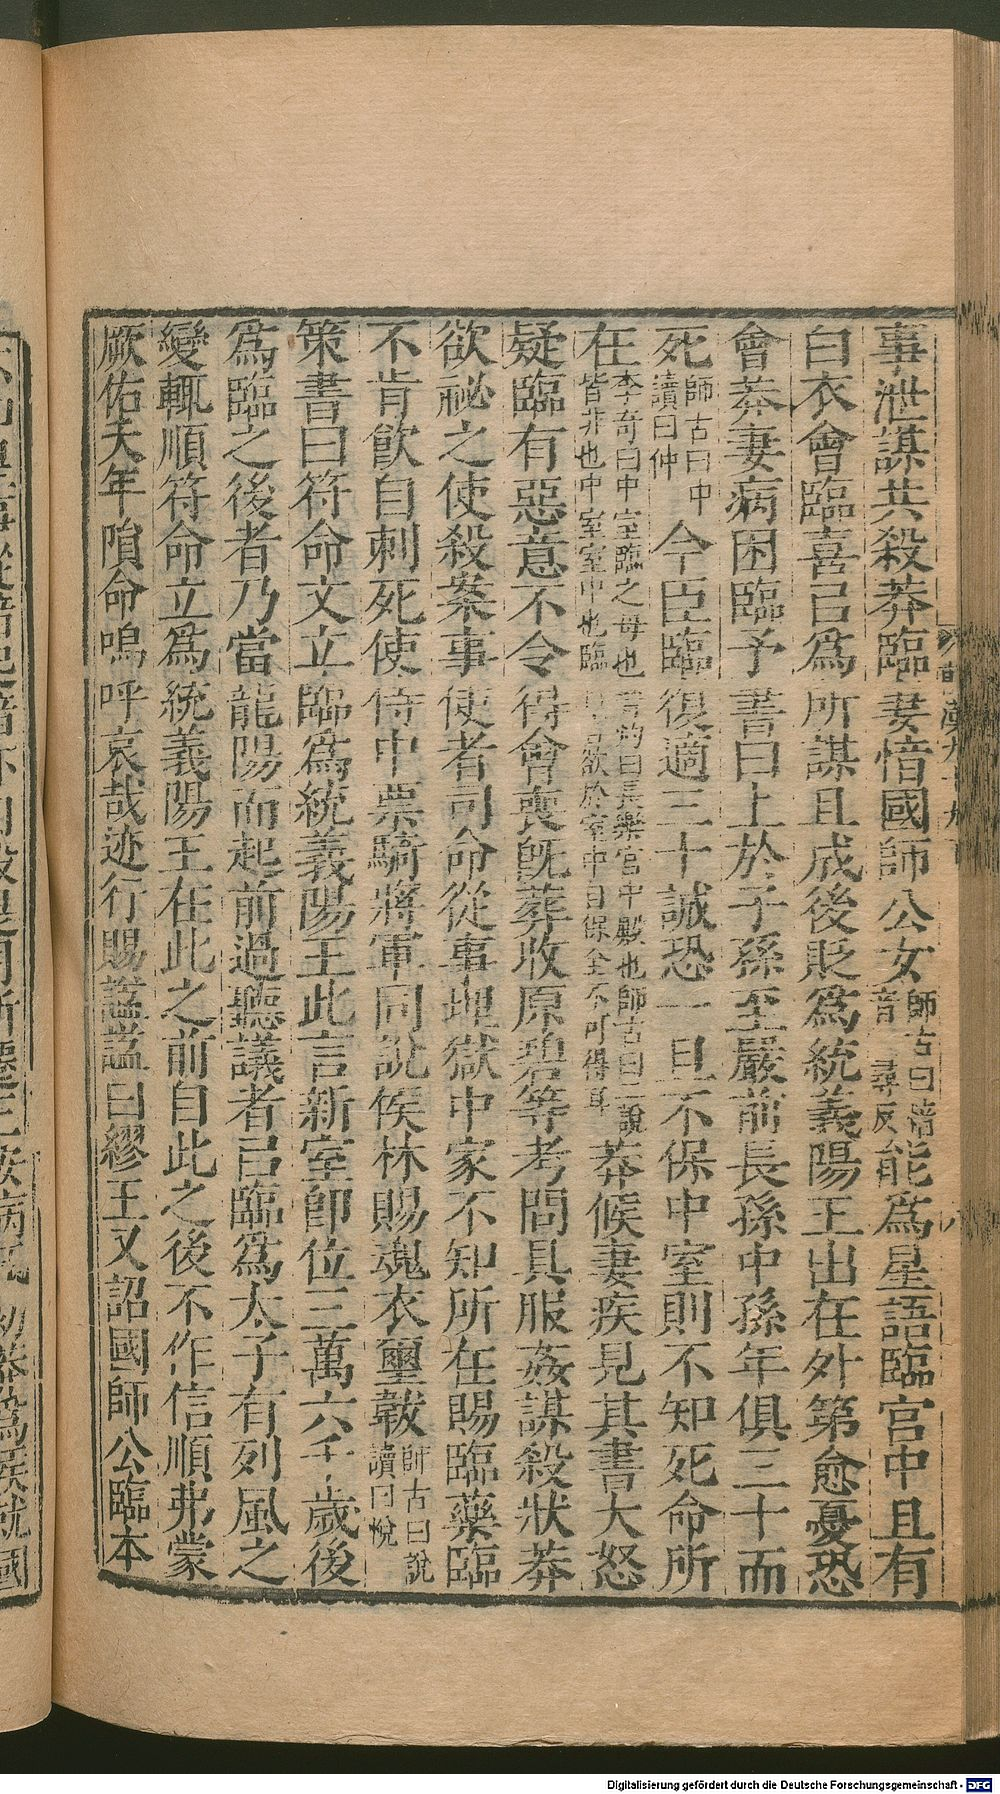 事泄謀共殺莽臨妻愔國師公女師古曰愔音尋反能爲星語臨宮中且有
白衣會臨喜以爲所謀且成後貶爲統義陽王出在外第愈憂恐
會莽妻病困臨予書曰上於子孫至嚴前長孫中孫年俱三十而
死師古曰中讀曰仲今臣臨復適三十誠恐一旦不保中室則不知死命所
在李奇曰中室臨之母也晉灼曰長樂宮中殿也師古曰二說皆非也中室室中也臨自欲於室中自保全不可得耳莽候妻疾見其書大怒
疑臨有惡意不令得會喪旣葬收原碧等考問具服姦謀殺狀莽
欲祕之使殺案事使者司命從事埋獄中家不知所在賜臨藥臨
不肯飮自刺死使侍中票騎將軍同說侯林賜魂衣璽韍師古曰說讀曰悅
策書曰符命文立臨爲統義陽王此言新室卽位三萬六千歲後
爲臨之後者乃當龍陽而起前過聽議者以臨爲太子有列風之
變輒順符命立爲統義陽王在此之前自此之後不作信順弗蒙
厥佑夭年隕命嗚呼哀哉迹行賜謚謚曰繆王又詔國師公臨本
前漢九十九
八
Digitalisierung gefördert durch die Deutsche Forschungsgemeinschaft - DFG